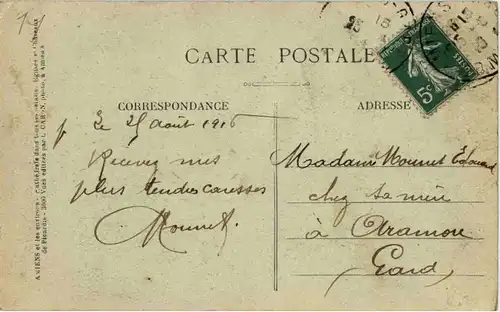 CARTE POSTALE
CORRESPONDANCE
Le 25 Août 1916
Recevez mes
plus tendres caresses
Mounet
ADRESSE
Madame Mounet Edouard
chez sa mère
à Aramon
Gard
5c
AMIENS et les environs - Cathédrale dans tous ses détails, Eglises et Châteaux
de Picardie - 3000 Vues éditées par L. CARON, photo, à Amiens